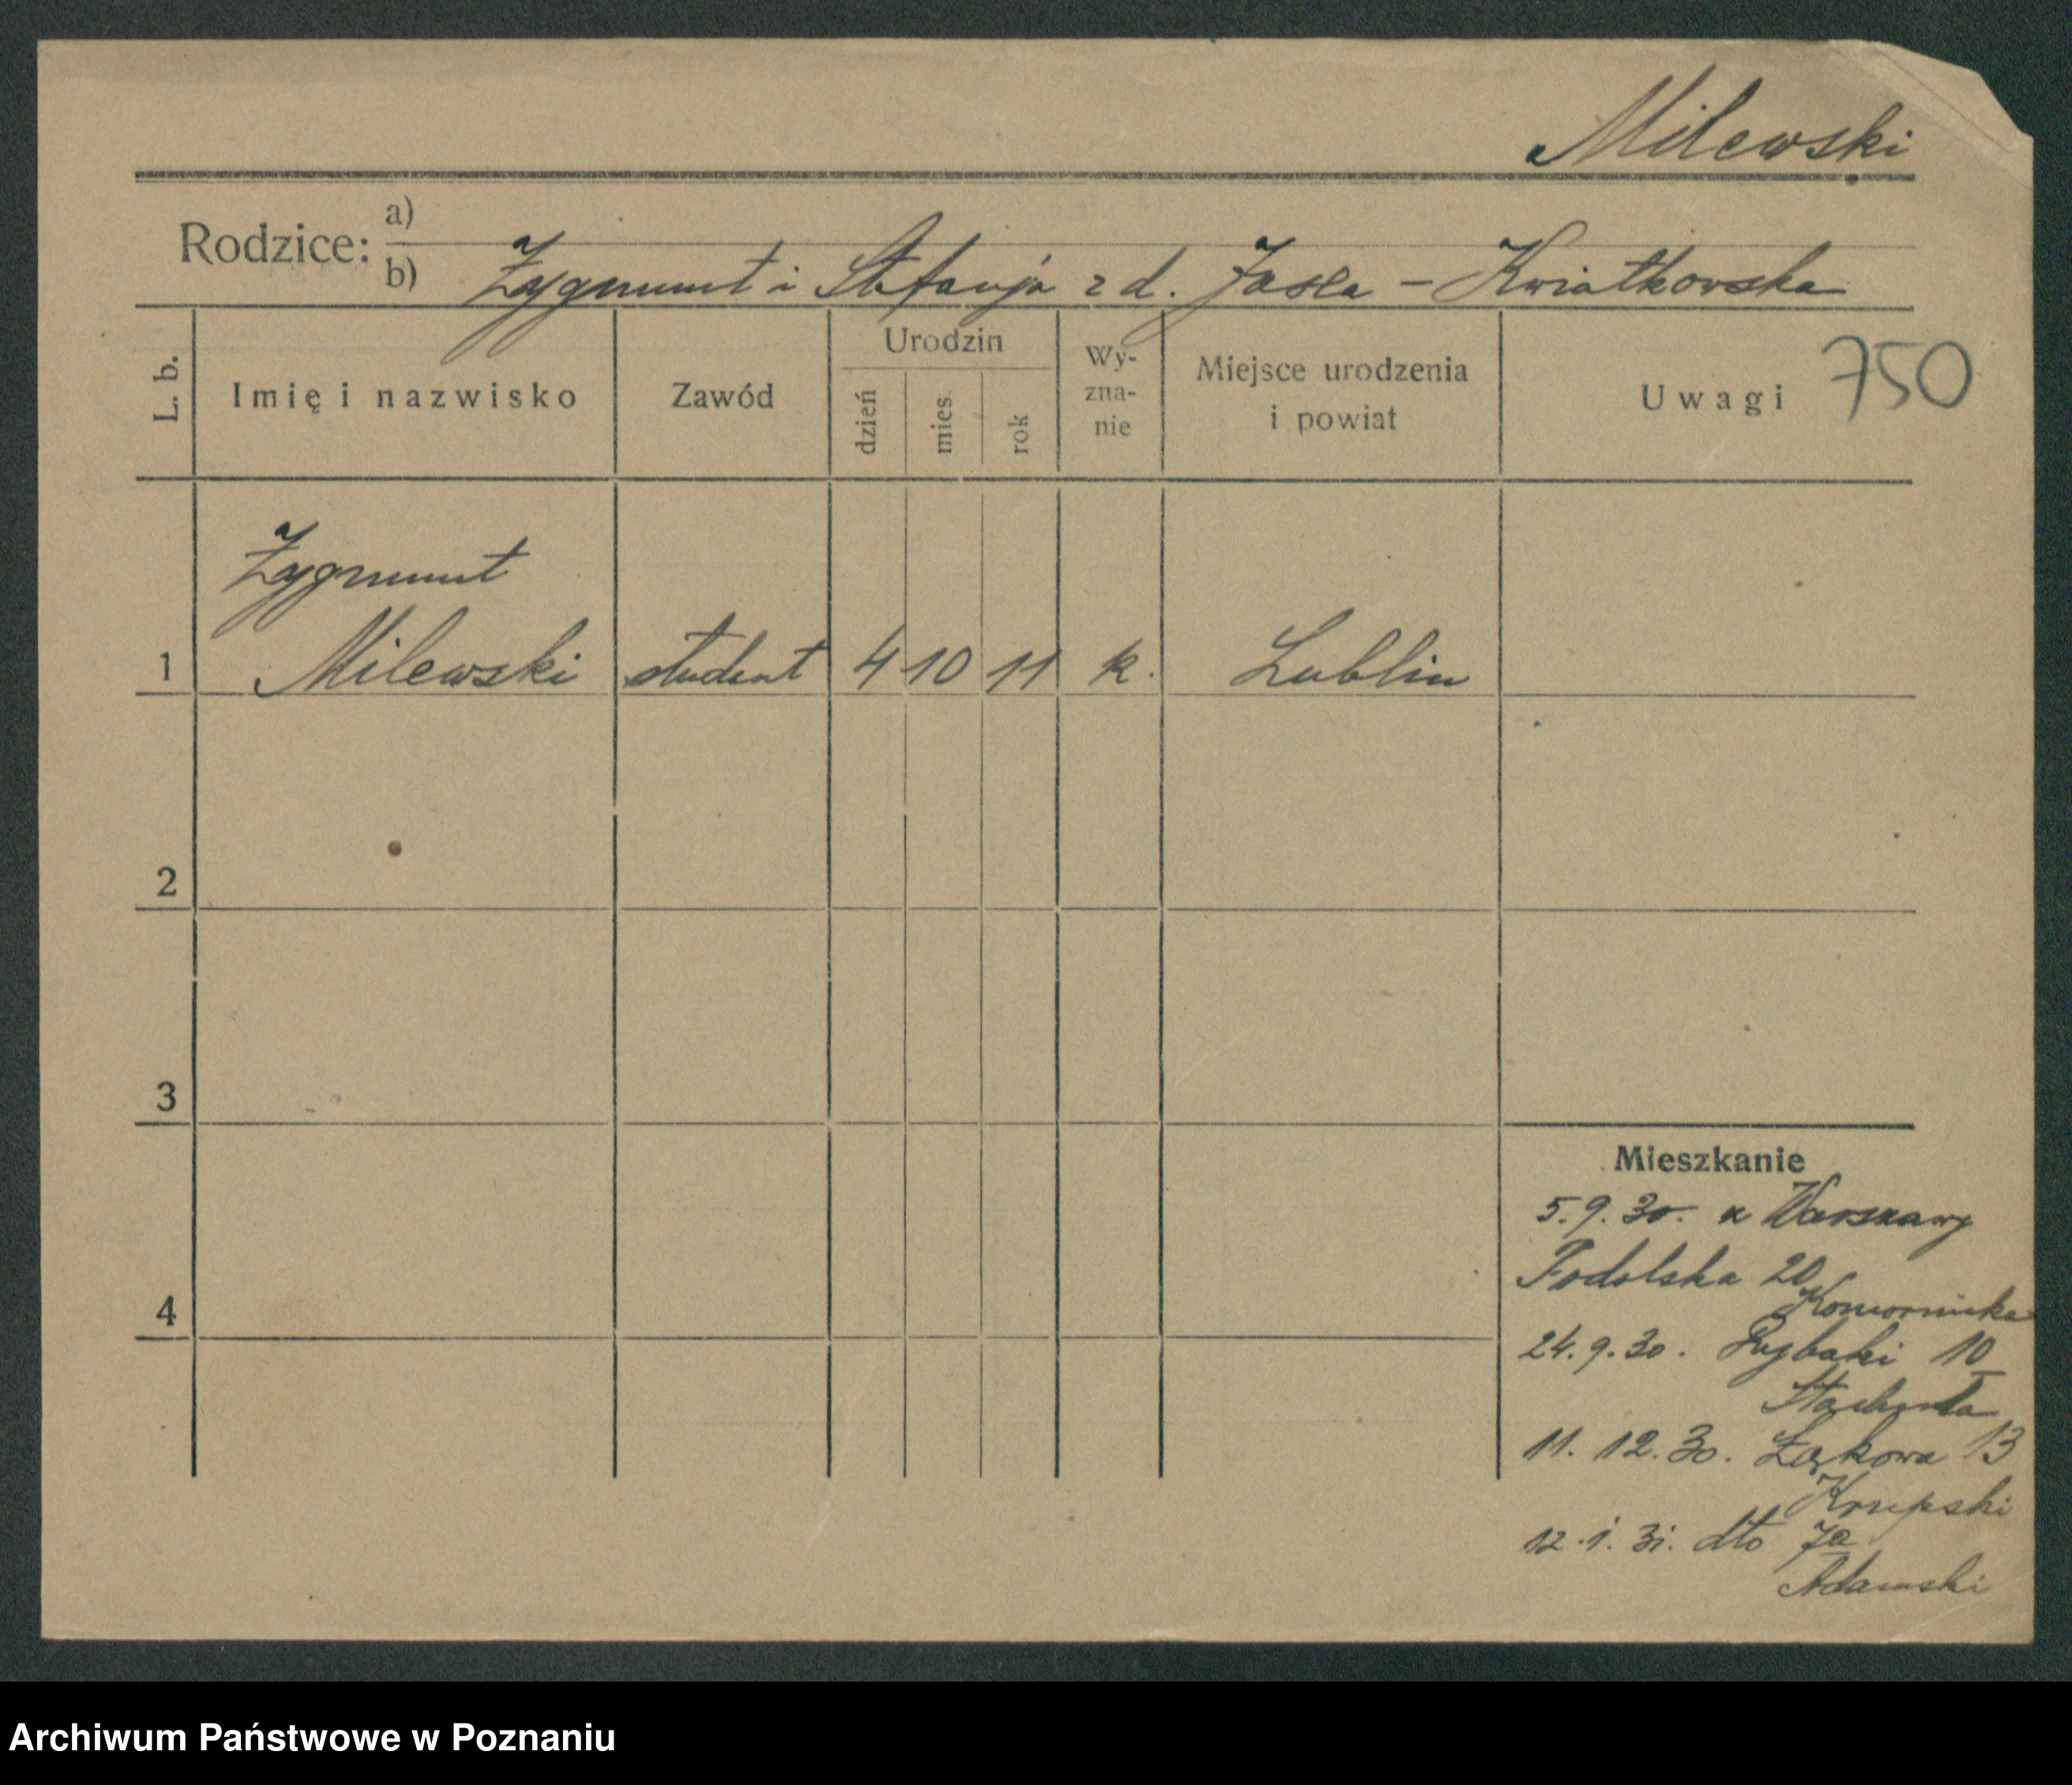 Milewski
Rodzice:
a)
b) Zygmunt i Stefanja z d. Jasła - Kwiatkowska
L. b.
Imię i nazwisko
Zawód
Urodzin
dzień
mies.
rok
Wy-
zna-
nie
Miejsce urodzenia
i powiat
Uwagi
750
Zygmunt
1 Milewski student 4 10 11 k. Lublin
2
3
4
Mieszkanie
5.9.30. z Warszawy
Podolska 20
Komornicka
24.9.30. Rybaki 10
11.12.30. Łąkowa 13
Krupski
12.1.31. dto 7a
Adamski
Archiwum Państwowe w Poznaniu